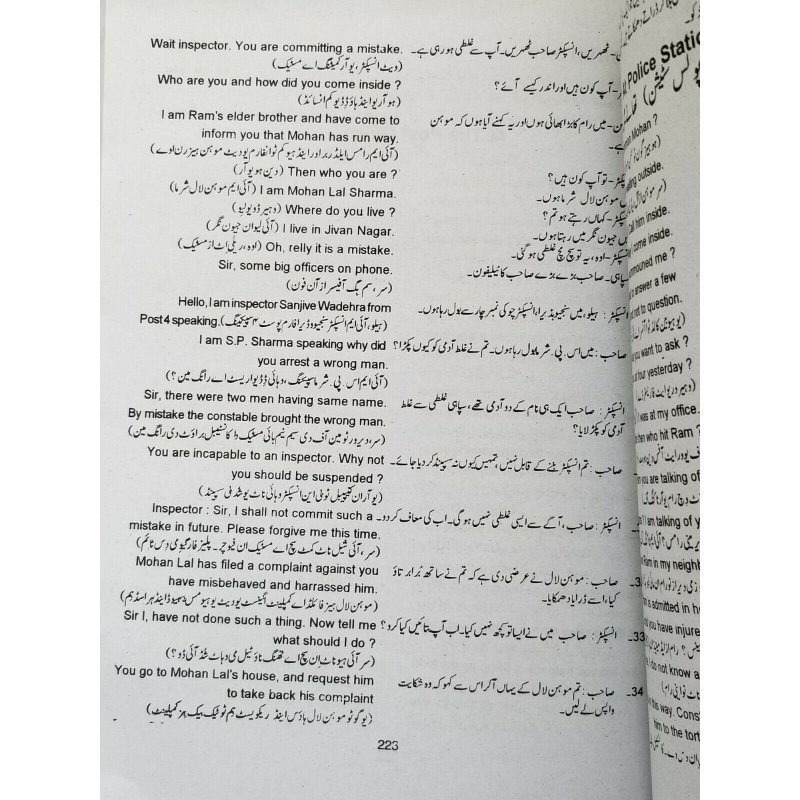 Wait inspector. You are committing a mistake.
ٹھہریں، انسپکٹر صاحب ٹھہریں۔ آپ سے غلطی ہو رہی ہے۔
(ویٹ انسپکٹر، یو آر کمیٹنگ اے مسٹیک)
Who are you and how did you come inside ?
آپ کون ہیں اور اندر کیسے آئے؟
(ہو آر یو اینڈ ہاؤ ڈِڈ یو کم انسائڈ)
I am Ram's elder brother and have come to
میں رام کا بڑا بھائی ہوں اور یہ کہنے آیا ہوں کہ موہن
inform you that Mohan has run way.
ہے۔
(آئی ایم رامس ایلڈر برادر اینڈ ہیو کم ٹو انفارم یو دیٹ موہن ہیز رن اوے)
(دین ہو یو آر) Then who you are ?
تو آپ کون ہیں؟
(آئی ایم موہن لال شرما) I am Mohan Lal Sharma.
موہن لال شرما ہوں۔
(وہیر ڈو یو لیو) Where do you live ?
کہاں رہتے ہو تم؟
(آئی لیو ان جیون نگر) I live in Jivan Nagar.
جیون نگر میں رہتا ہوں۔
(اوہ، ریلی اٹ از مسٹیک) Oh, relly it is a mistake.
اوہ، یہ تو سچ مچ غلطی ہو گئی۔
Sir, some big officers on phone.
صاحب بڑے بڑے صاحب کا ٹیلیفون۔
(سر، سم بگ آفیسرز آن فون)
Hello, I am inspector Sanjive Wadehra from
ہیلو، میں سنجیو وڈیرا، انسپکٹر چوکی نمبر چار سے بول رہا ہوں۔
Post 4 speaking. (ہیلو، آئی ایم انسپکٹر سنجیو وڈیرا فارم پوسٹ ۴ سپیکینگ)
I am S.P. Sharma speaking why did
صاحب : میں اس۔ پی۔ شرما بول رہا ہوں۔ تم نے غلط آدمی کو کیوں پکڑا؟
you arrest a wrong man.
(آئی ایم اس۔ پی۔ شرما سپیکنگ، وہائی ڈڈ یو اریسٹ اے رانگ مین؟)
Sir, there were two men having same name.
انسپکٹر : صاحب ایک ہی نام کے دو آدمی تھے، سپاہی غلطی سے غلط
By mistake the constable brought the wrong man.
آدمی کو پکڑ لایا؟
(سر، دیر ور ٹو مین آف دی سیم نیم بائی مسٹیک دا کانسٹیبل براؤٹ دی رانگ مین)
You are incapable to an inspector. Why not
صاحب : تم انسپکٹر بننے کے قابل نہیں، تمہیں کیوں نہ سسپینڈ کر دیا جائے۔
you should be suspended ?
Inspector : Sir, I shall not commit such a
انسپکٹر : صاحب، آگے سے ایسی غلطی نہیں ہوگی۔ اب کی معاف کر دو۔
mistake in future. Please forgive me this time.
(سر، آئی شیل ناٹ کمٹ سچ اے مسٹیک ان فیوچر۔ پلیز فارگیو می دس ٹائم)
Mohan Lal has filed a complaint against you
صاحب : موہن لال نے عرضی دی ہے کہ تم نے ساتھ برا برتاؤ
have misbehaved and harrassed him.
کیا، اسے ڈرایا دھمکایا۔
Sir I, have not done such a thing. Now tell me
33۔ انسپکٹر : صاحب میں نے ایسا تو کچھ نہیں کیا۔ اب آپ بتائیں کیا کرو؟
what should I do ?
(سر آئی ہیو ناٹ ان سچ اے تھنگ ناؤ ٹیل می وہاٹ شڈ آئی ڈو؟)
You go to Mohan Lal's house, and request him
34۔ صاحب : تم موہن لال کے یہاں آ کر اس سے کہو کہ وہ شکایت
to take back his complaint
واپس لے لیں۔
(یو گو ٹو موہن لال ہاؤس اینڈ ریکویسٹ ہم ٹو ٹیک بیک ہز کمپلینٹ)
223
Police Static
Mohan ?
outside.
him inside.
come inside.
mmouned me ?
to answer a few
not to question.
you want to ask ?
four yesterday ?
was at my office.
then who hit Ram ?
you are talking of
I am talking of y
Ram in my neighb
is admitted in ho
you have injure
do not know a
this way. Const
him to the tort